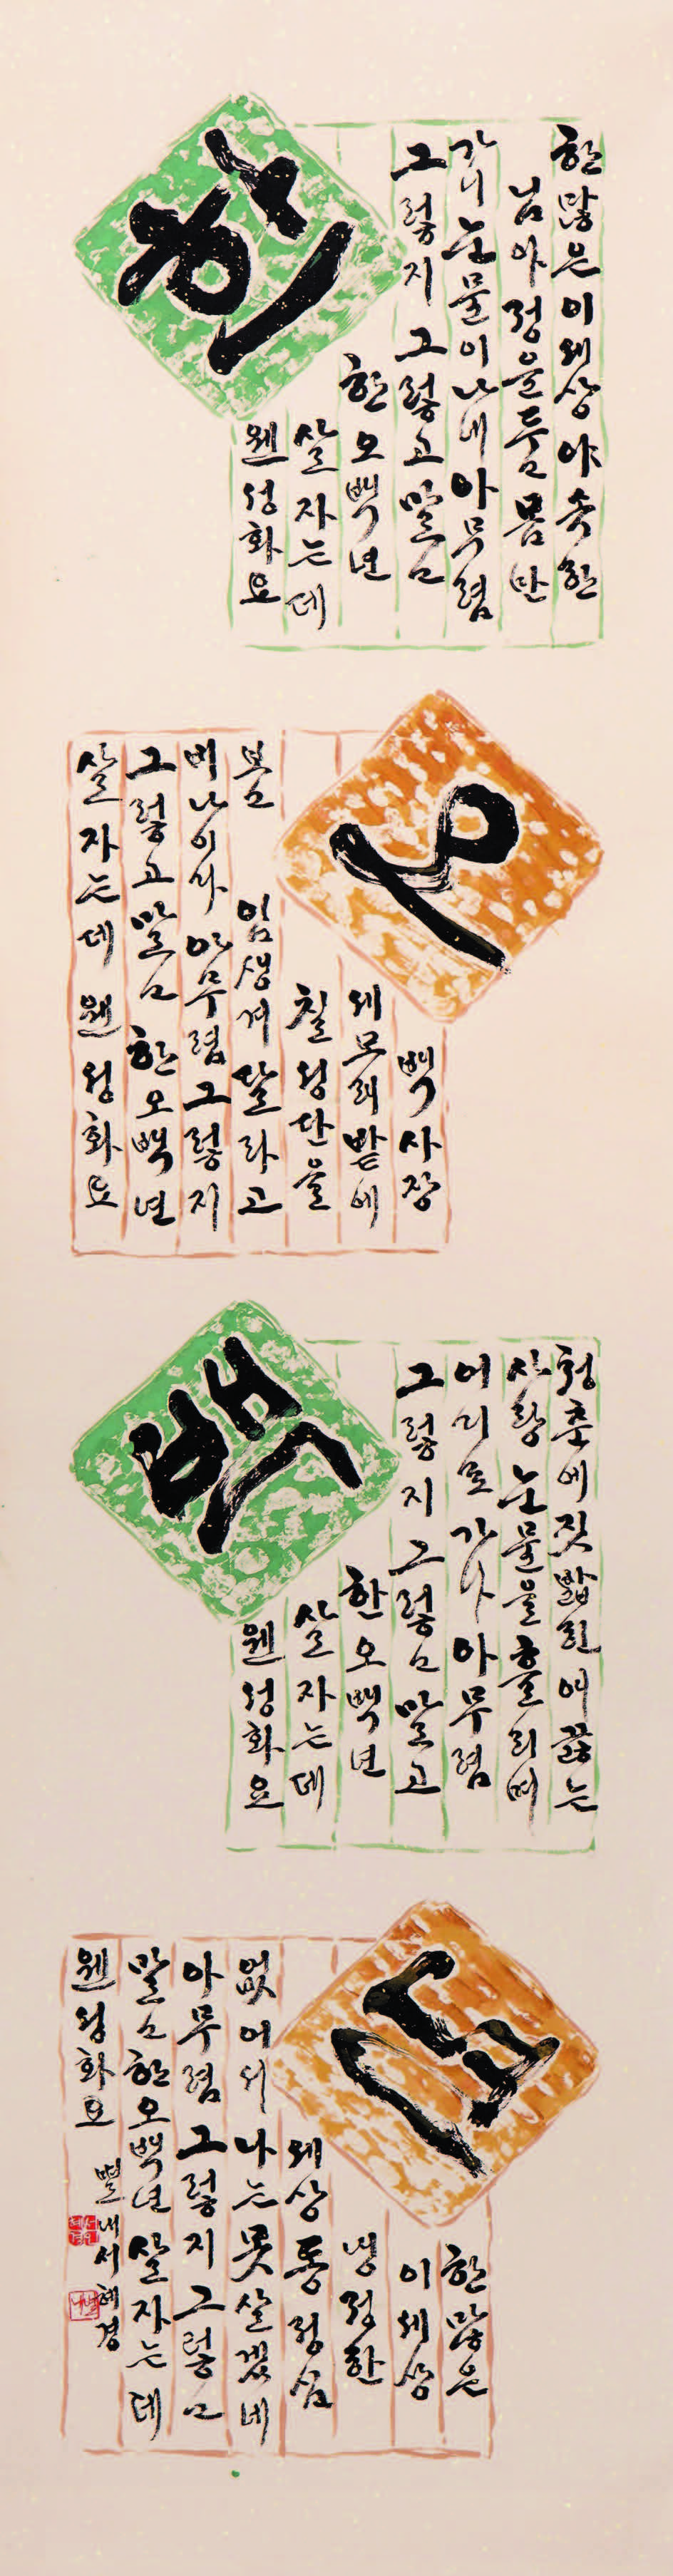 한
한 많은 이 세상 야속한
님아 정을 두고 몸만
가니 눈물이 나네 아무렴
그렇지 그렇고 말고
한 오백년
살자는데
웬 성화요
오
백사장
세모래 밭에
칠성단을
임 생겨 달라고
비나이다 아무렴 그렇지
그렇고 말고 한 오백년
살자는데 웬 성화요
백
청춘에 짓밟힌 애끓는
사랑 눈물을 흘리며
어디로 가나 아무렴
그렇지 그렇고 말고
한 오백년
살자는데
웬 성화요
년
한 많은
이 세상
냉정한
세상 동정심
없어서 나는 못 살겠네
아무렴 그렇지 그렇고
말고 한 오백년 살자는데
웬 성화요
서혜경